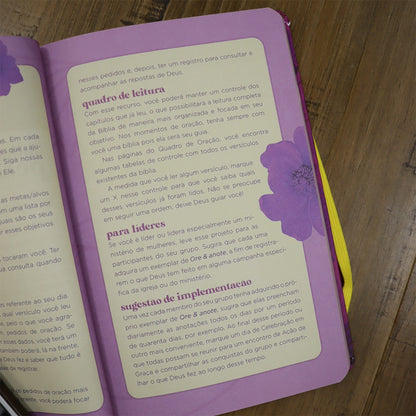 em. Cada
es que a aju-
Siga nossas
Ele.
as metas/alvos
om uma lista por
quais são os seus
dos os objetivos
tocarem você. Ter
ua consulta quando
s referente ao seu dia
qual versículo você leu
a, pelo o que você agra-
us, pedidos de oração. Se
r esses dados, você terá um
também poderá, lá na frente,
Deus fez e saber que tudo é
as de registrar.
os pedidos de oração mais
, você poderá focar
nesses pedidos e, depois, ter um registro para consultar e
acompanhar as repostas de Deus.
quadro de leitura
Com esse recurso, você poderá manter um controle dos
capítulos que já leu, o que possibilitará a leitura completa
da Bíblia de maneira mais organizada e focada em seu
objetivo. Nos momentos de oração, tenha sempre com
você uma bíblia pois ela será seu guia.
Nas páginas do Quadro de Oração, você encontra
algumas tabelas de controle com todos os versículos
existentes da bíblia.
A medida que você ler algum versículo, marque
um X nesse controle para que você saiba quais
desses versículos já foram lidos. Não se preocupe
em seguir uma ordem, deixe Deus guiar você!
para líderes
Se você é líder ou lidera especialmente um mi-
nistério de mulheres, leve esse projeto para as
participantes do seu grupo. Sugira que cada uma
adquira um exemplar de Ore & anote, a fim de registra-
rem o que Deus tem feito em alguma campanha especí-
fica da igreja ou do ministério.
sugestão de implementação
Uma vez cada membro do seu grupo tenha adquirido o pró-
prio exemplar de Ore & anote, sugira que elas preencham
diariamente as anotações todos os dias por um período
de quarenta dias, por exemplo. Ao final desse período ou
outro mais conveniente, marque um dia de Celebração em
que todas possam se reunir para um encontro de Ação de
Graça e compartilhar as conquistas do grupo e comparti-
lhar o que Deus fez ao longo desse tempo.